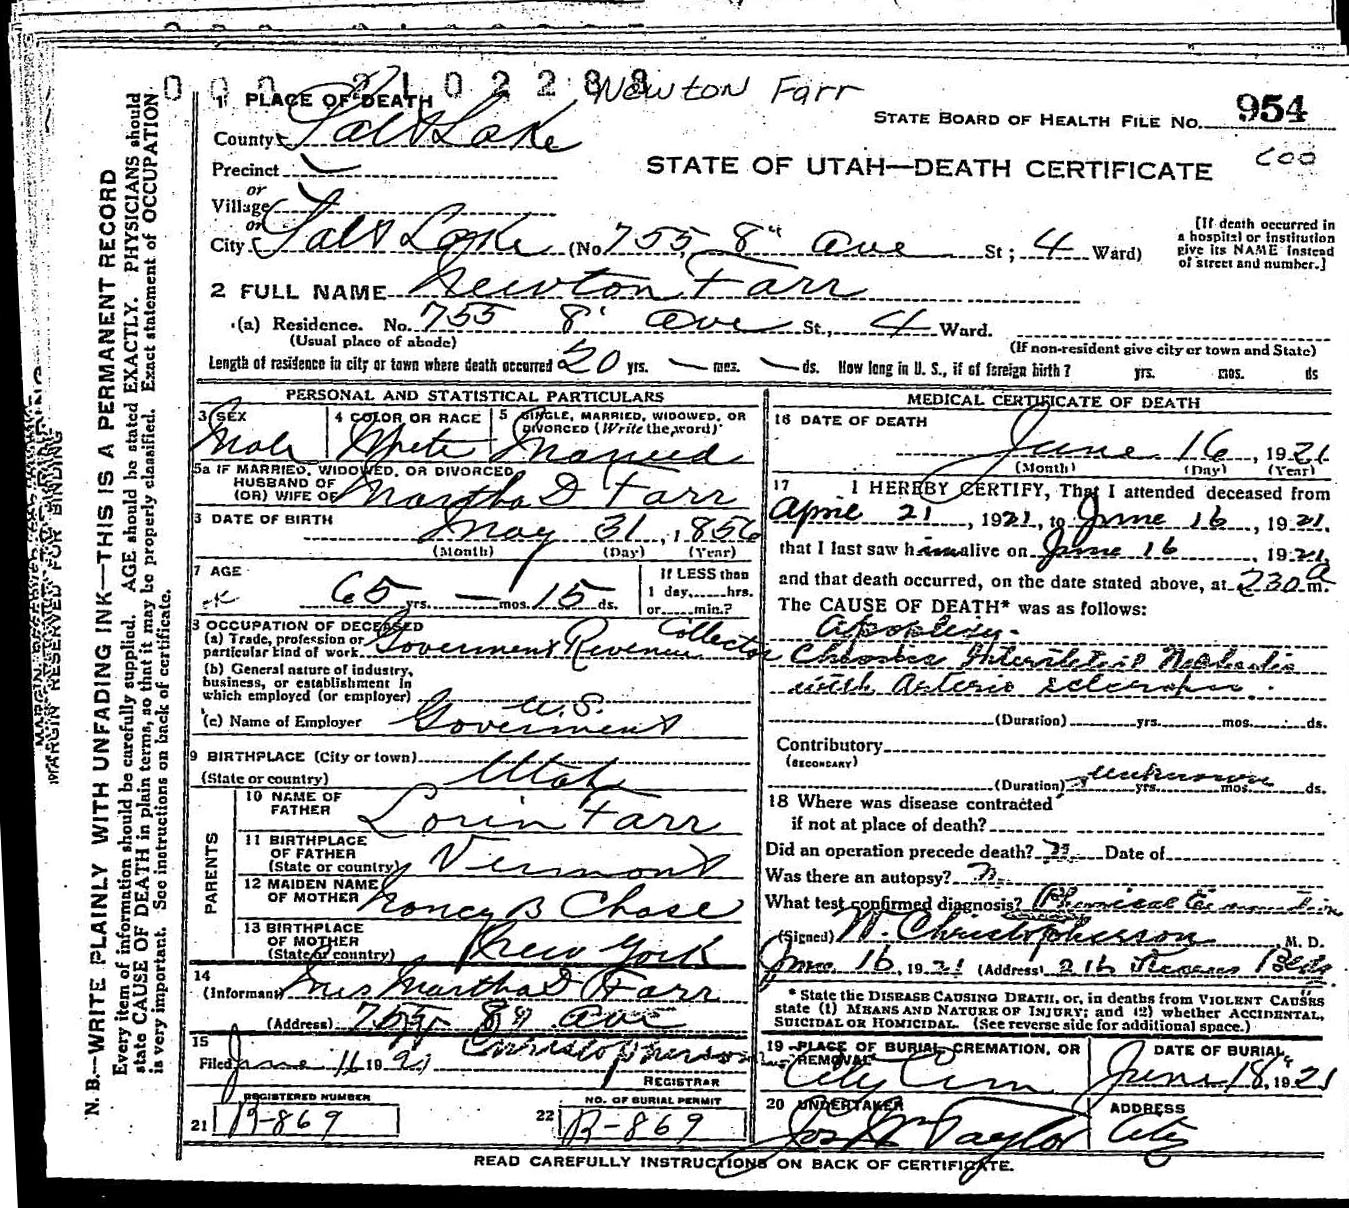 0 0 0 2 1 0 2 2 8 8 Newton Farr
1 PLACE OF DEATH
STATE BOARD OF HEALTH FILE NO. 954
County Salt Lake
600
STATE OF UTAH—DEATH CERTIFICATE
Precinct
or
Village
or
City Salt Lake (No 755, 8" ave St; 4 Ward)
[If death occurred in
a hospital or institution
give its NAME instead
of street and number.]
2 FULL NAME Newton Farr
(a) Residence. No. 755 8' ave St., 4 Ward.
(Usual place of abode)
(If non-resident give city or town and State)
Length of residence in city or town where death occurred 50 yrs. — mos. — ds. How long in U. S., if of foreign birth? yrs. mos. ds
PERSONAL AND STATISTICAL PARTICULARS
3 SEX
Male
4 COLOR OR RACE
White
5 SINGLE, MARRIED, WIDOWED, OR
DIVORCED (Write the word)
Married
5a IF MARRIED, WIDOWED, OR DIVORCED
HUSBAND OF
(OR) WIFE OF Martha D Farr
DATE OF BIRTH
May 31, 1856
(Month) (Day) (Year)
7 AGE
65 yrs. — mos. 15 ds.
If LESS than
1 day, hrs.
or min.?
OCCUPATION OF DECEASED
(a) Trade, profession or
particular kind of work Goverment Revenue Collector
(b) General nature of industry,
business, or establishment in
which employed (or employer)
(c) Name of Employer U.S. Goverment
9 BIRTHPLACE (City or town)
(State or country) Utah
PARENTS
10 NAME OF
FATHER Lorin Farr
11 BIRTHPLACE
OF FATHER
(State or country) Vermont
12 MAIDEN NAME
OF MOTHER Nancy B Chase
13 BIRTHPLACE
OF MOTHER
(State or country) New York
14
(Informant Mrs Martha D Farr
(Address) 755 8" ave
15
Filed June 16 1921 Christopherson
REGISTRAR
REGISTERED NUMBER
21 R-869
NO. OF BURIAL PERMIT
22 R-869
MEDICAL CERTIFICATE OF DEATH
16 DATE OF DEATH
June 16, 1921
(Month) (Day) (Year)
17 I HEREBY CERTIFY, That I attended deceased from
April 21, 1921, to June 16, 1921.
that I last saw him alive on June 16, 1921
and that death occurred, on the date stated above, at 230 a m.
The CAUSE OF DEATH* was as follows:
Apoplexy.
Chronic Interstitial Nephritis
with Arterio sclerosis.
(Duration) yrs. mos. ds.
Contributory
(SECONDARY)
(Duration) unknown yrs. mos. ds.
18 Where was disease contracted
if not at place of death?
Did an operation precede death? no Date of
Was there an autopsy? no
What test confirmed diagnosis? Physical Examination
(Signed) W. Christopherson, M. D.
June 16, 1921 (Address) 216 Bldg
* State the DISEASE CAUSING DEATH, or, in deaths from VIOLENT CAUSES
state (1) MEANS AND NATURE OF INJURY; and (2) whether ACCIDENTAL,
SUICIDAL OR HOMICIDAL. (See reverse side for additional space.)
19 PLACE OF BURIAL, CREMATION, OR
REMOVAL
City Cem
DATE OF BURIAL
June 18, 1921
20 UNDERTAKER
Jos Wm Taylor
ADDRESS
City
READ CAREFULLY INSTRUCTIONS ON BACK OF CERTIFICATE.
MARGIN RESERVED FOR BINDING
N. B.—WRITE PLAINLY WITH UNFADING INK—THIS IS A PERMANENT RECORD
Every item of information should be carefully supplied. AGE should be stated EXACTLY. PHYSICIANS should
state CAUSE OF DEATH in plain terms, so that it may be properly classified. Exact statement of OCCUPATION
is very important. See instructions on back of certificate.